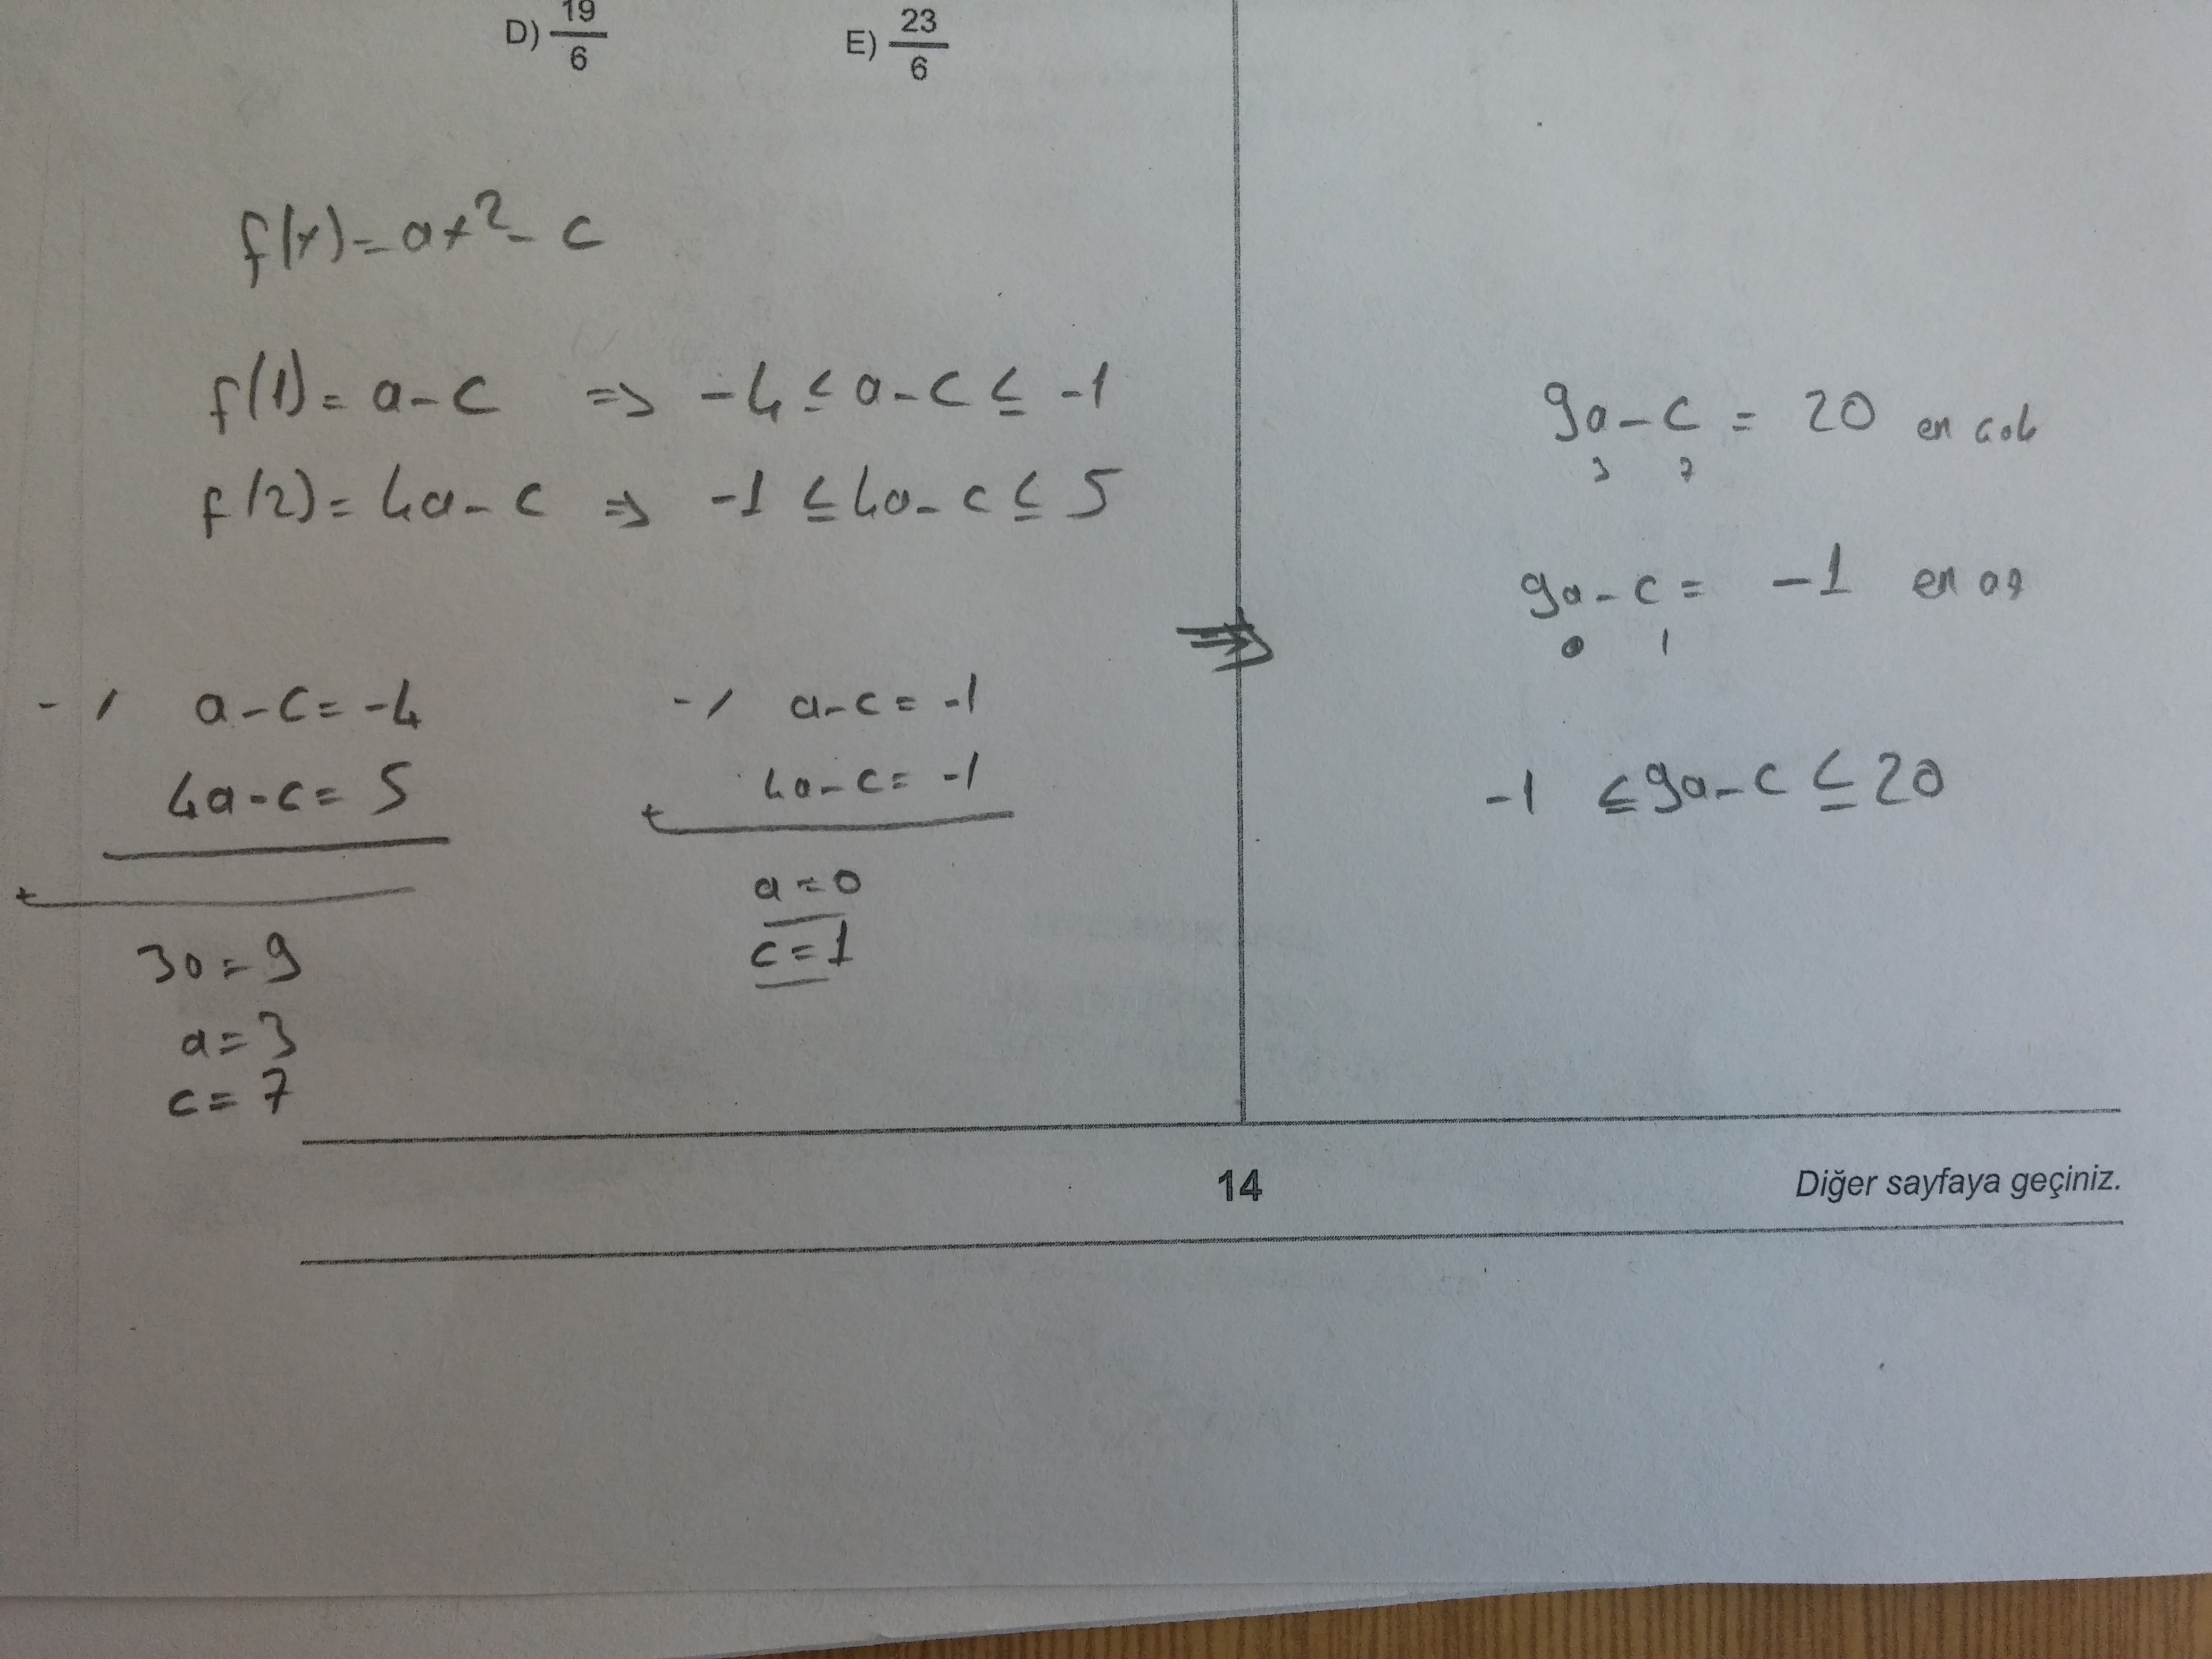 D) 19/6 E) 23/6
f(x) = ax² - c
f(1) = a - c ⇒ -4 ≤ a - c ≤ -1
f(2) = 4a - c ⇒ -1 ≤ 4a - c ≤ 5
-/ a - c = -4
4a - c = 5
+
3a = 9
a = 3
c = 7
-/ a - c = -1
4a - c = -1
+
a = 0
c = 1
⇒
9a - c = 20 en çok
3 7
9a - c = -1 en az
0 1
-1 ≤ 9a - c ≤ 20
14
Diğer sayfaya geçiniz.